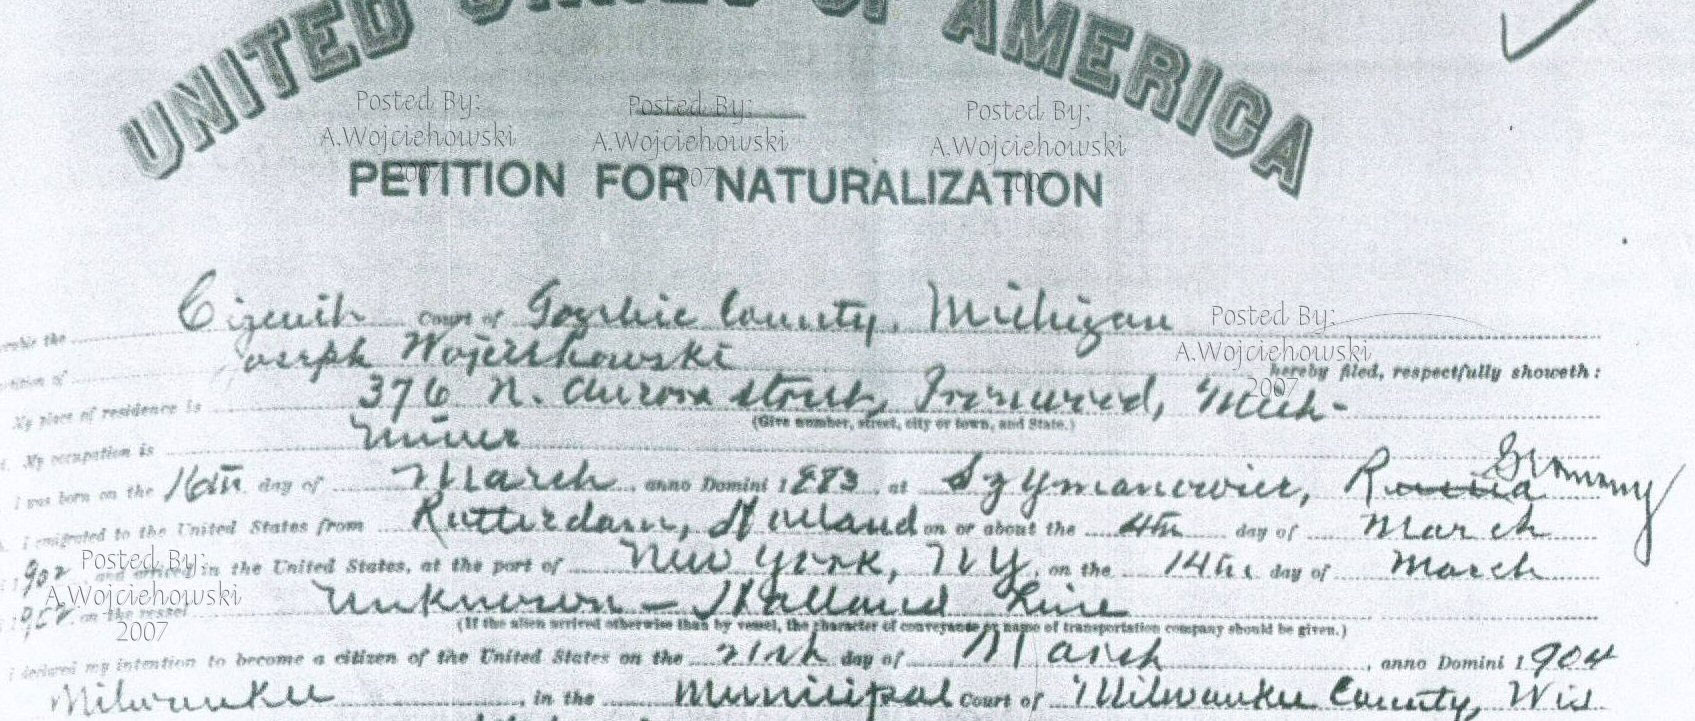 UNITED STATES OF AMERICA
Posted By: Posted By: Posted By:
A.Wojciehowski A.Wojciehowski A.Wojciehowski
2007 2007 2007
PETITION FOR NATURALIZATION
Court of Gogebic County, Michigan
Posted By:
Joseph Wojciehowski
A.Wojciehowski
hereby filed, respectfully showeth:
2007
My place of residence is 376 N. Aurora Street, Ironwood, Mich-
(Give number, street, city or town, and State.)
My occupation is Miner
I was born on the 16th day of March, anno Domini 1883, at Szymanowicz, Russia Germany
I emigrated to the United States from Rotterdam, Holland on or about the 4th day of March
1902 and arrived in the United States, at the port of New York, NY, on the 14th day of March
Posted By:
A.Wojciehowski
2007
1902 on the vessel Unknown - Holland Line
(If the alien arrived otherwise than by vessel, the character of conveyance or name of transportation company should be given.)
I declared my intention to become a citizen of the United States on the day of March, anno Domini 1904
Milwaukee, in the Municipal Court of Milwaukee County, Wis